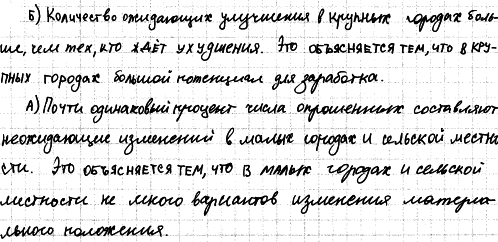 Б) Количество ожидающих улучшения в крупных городах боль-
ше, чем тех, кто ждёт ухудшения. Это объясняется тем, что в кру-
пных городах большой потенциал для заработка.
А) Почти одинаковый процент числа опрошенных составляют
неожидающие изменений в малых городах и сельской местно
сти. Это объясняется тем, что в малых городах и сельской
местности не много вариантов изменения материа-
льного положения.